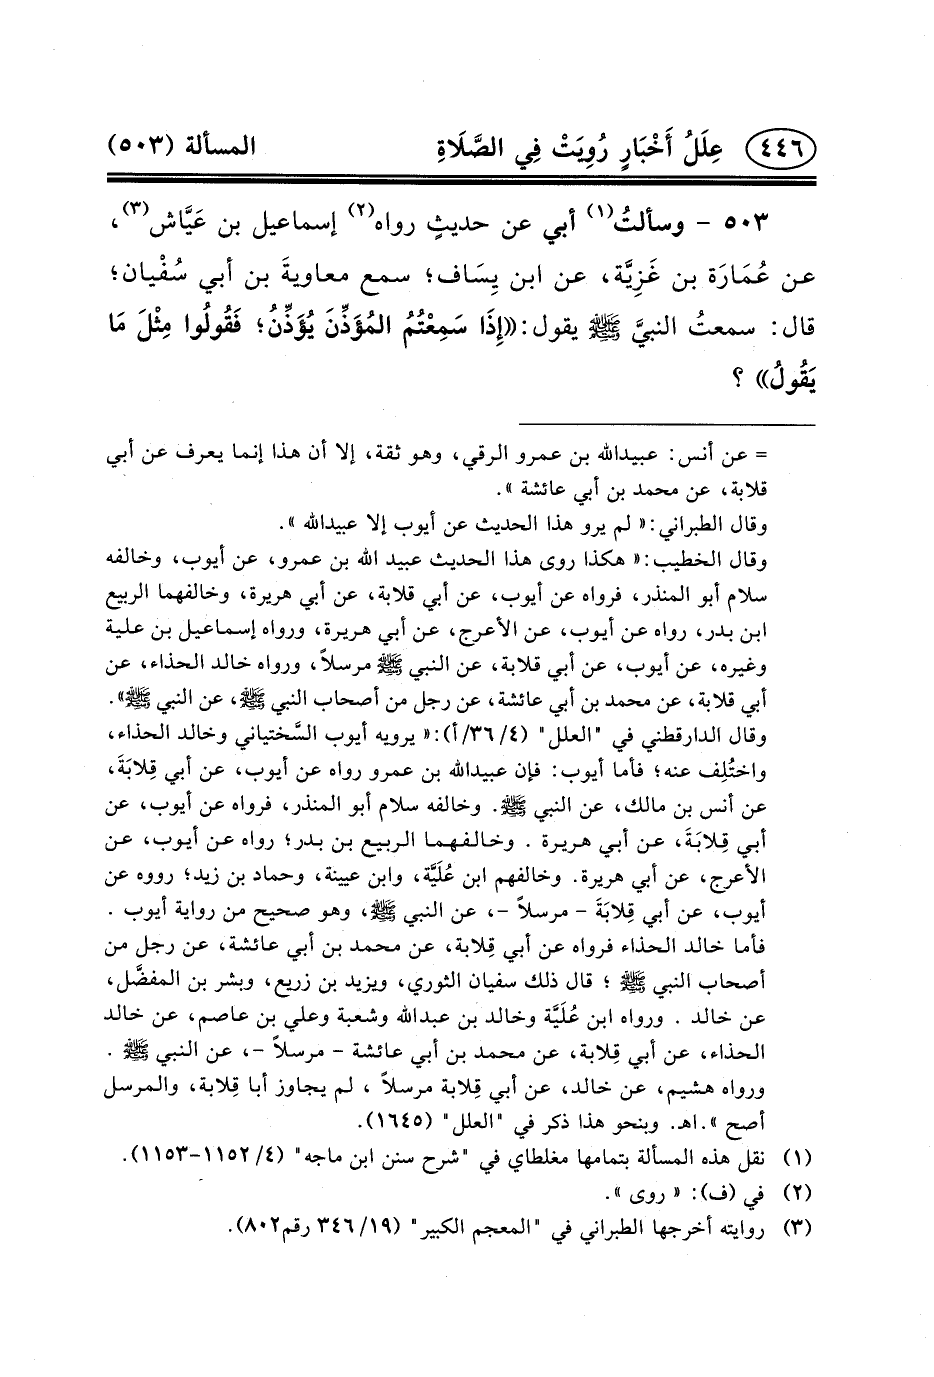 ٤٤٦ عِلَلُ أَخْبَارٍ رُوِيَتْ فِي الصَّلَاةِ المسألة (٥٠٣)
٥٠٣ - وسألتُ(١) أبي عن حديثٍ رواه(٢) إسماعيل بن عَيَّاش(٣)،
عن عُمَارَة بن غَزِيَّة، عن ابن يِسَاف؛ سمع معاويةَ بن أبي سُفْيان؛
قال: سمعتُ النبيَّ ﷺ يقول: ((إِذَا سَمِعْتُمُ المُؤَذِّنَ يُؤَذِّنُ؛ فَقُولُوا مِثْلَ مَا
يَقُولُ)) ؟
= عن أنس: عبيدالله بن عمرو الرقي، وهو ثقة، إلا أن هذا إنما يعرف عن أبي
قلابة، عن محمد بن أبي عائشة ».
وقال الطبراني:« لم يرو هذا الحديث عن أيوب إلا عبيدالله ».
وقال الخطيب:« هكذا روى هذا الحديث عبيد الله بن عمرو، عن أيوب، وخالفه
سلام أبو المنذر، فرواه عن أيوب، عن أبي قلابة، عن أبي هريرة، وخالفهما الربيع
ابن بدر، رواه عن أيوب، عن الأعرج، عن أبي هريرة، ورواه إسماعيل بن علية
وغيره، عن أيوب، عن أبي قلابة، عن النبي ﷺ مرسلاً، ورواه خالد الحذاء، عن
أبي قلابة، عن محمد بن أبي عائشة، عن رجل من أصحاب النبي ﷺ، عن النبي ﷺ».
وقال الدارقطني في "العلل" (٤/ ٣٦/أ):« يرويه أيوب السَّختياني وخالد الحذاء،
واختُلِف عنه؛ فأما أيوب: فإن عبيدالله بن عمرو رواه عن أيوب، عن أبي قِلابَةَ،
عن أنس بن مالك، عن النبي ﷺ. وخالفه سلام أبو المنذر، فرواه عن أيوب، عن
أبي قِلابَةَ، عن أبي هريرة . وخالفهما الربيع بن بدر؛ رواه عن أيوب، عن
الأعرج، عن أبي هريرة. وخالفهم ابن عُلَيَّة، وابن عيينة، وحماد بن زيد؛ رووه عن
أيوب، عن أبي قِلابَةَ - مرسلاً -، عن النبي ﷺ، وهو صحيح من رواية أيوب .
فأما خالد الحذاء فرواه عن أبي قِلابة، عن محمد بن أبي عائشة، عن رجل من
أصحاب النبي ﷺ ؛ قال ذلك سفيان الثوري، ويزيد بن زريع، وبشر بن المفضَّل،
عن خالد . ورواه ابن عُلَيَّة وخالد بن عبدالله وشعبة وعلي بن عاصم، عن خالد
الحذاء، عن أبي قِلابة، عن محمد بن أبي عائشة - مرسلاً -، عن النبي ﷺ .
ورواه هشيم، عن خالد، عن أبي قِلابة مرسلاً ، لم يجاوز أبا قِلابة، والمرسل
أصح ».اهـ. وبنحو هذا ذكر في "العلل" (١٦٤٥).
(١) نقل هذه المسألة بتمامها مغلطاي في "شرح سنن ابن ماجه" (٤/ ١١٥٢-١١٥٣).
(٢) في (ف): « روى ».
(٣) روايته أخرجها الطبراني في "المعجم الكبير" (١٩/ ٣٤٦ رقم٨٠٢).